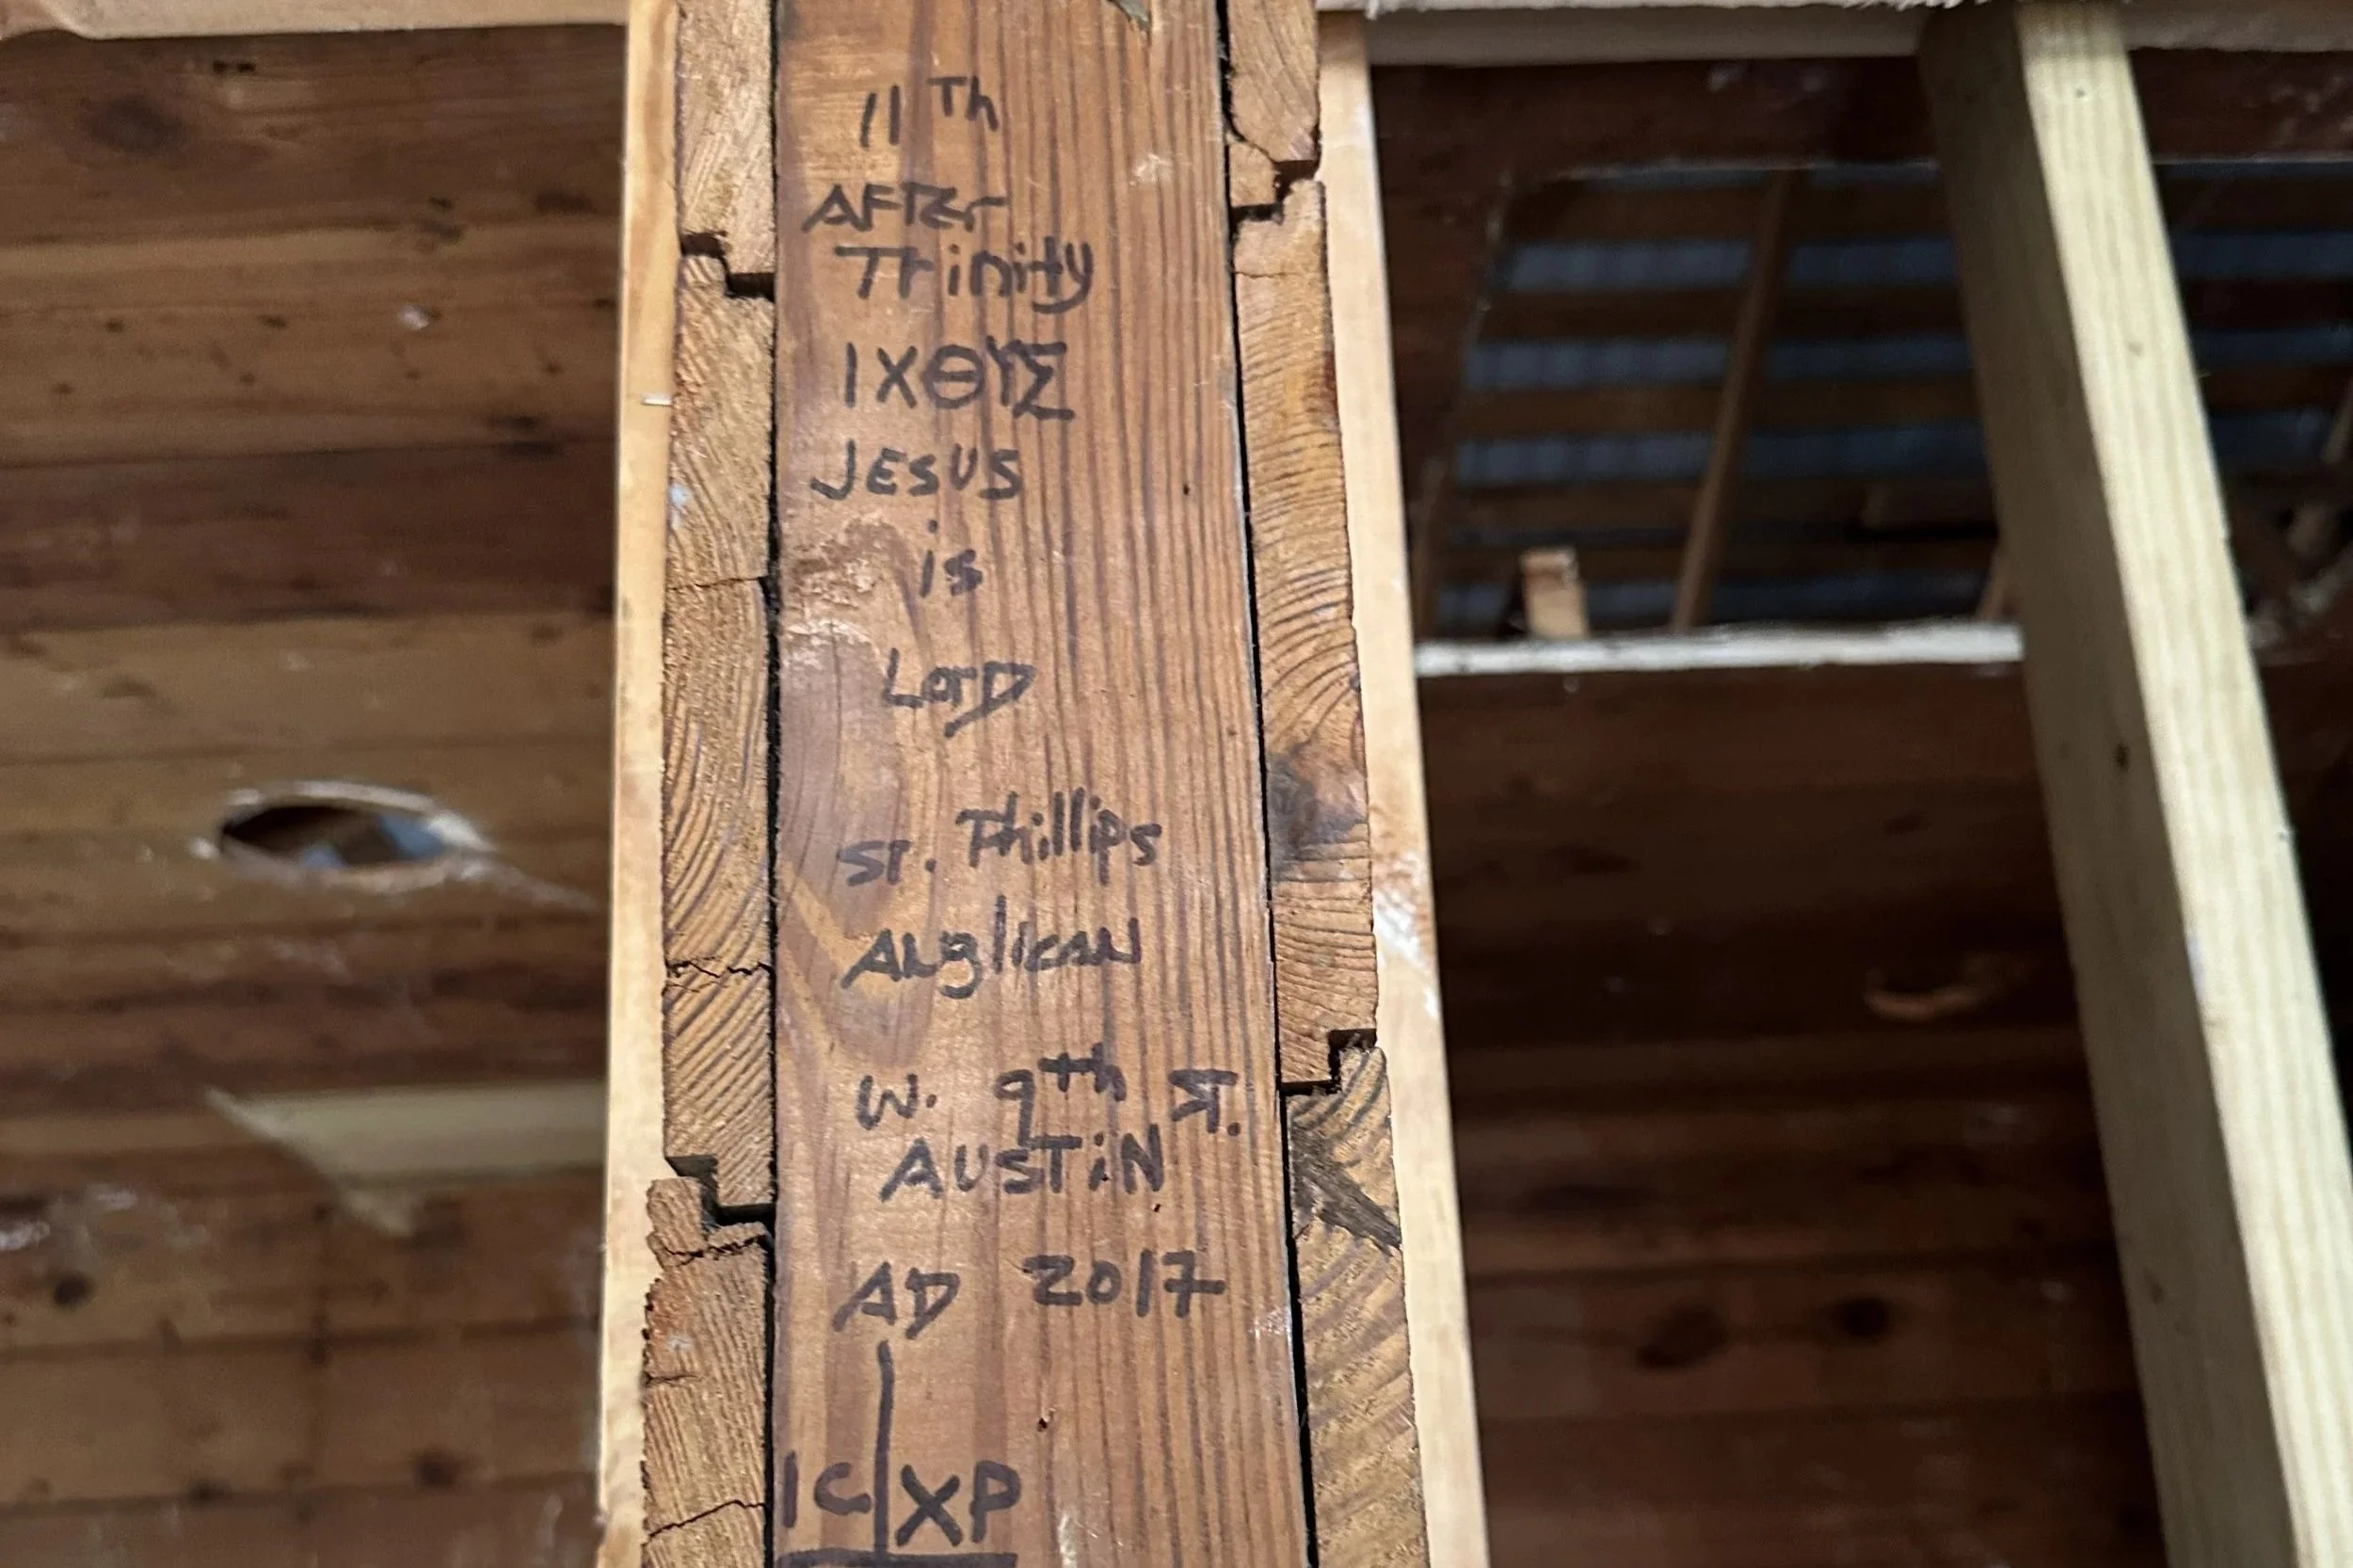 11Th
AFTEr
Trinity
ΙΧΘΥΣ
JESUS
is
LorD
ST. Phillips
ANglicaN
W. 9th ST.
AUSTiN
AD 2017
IC XP